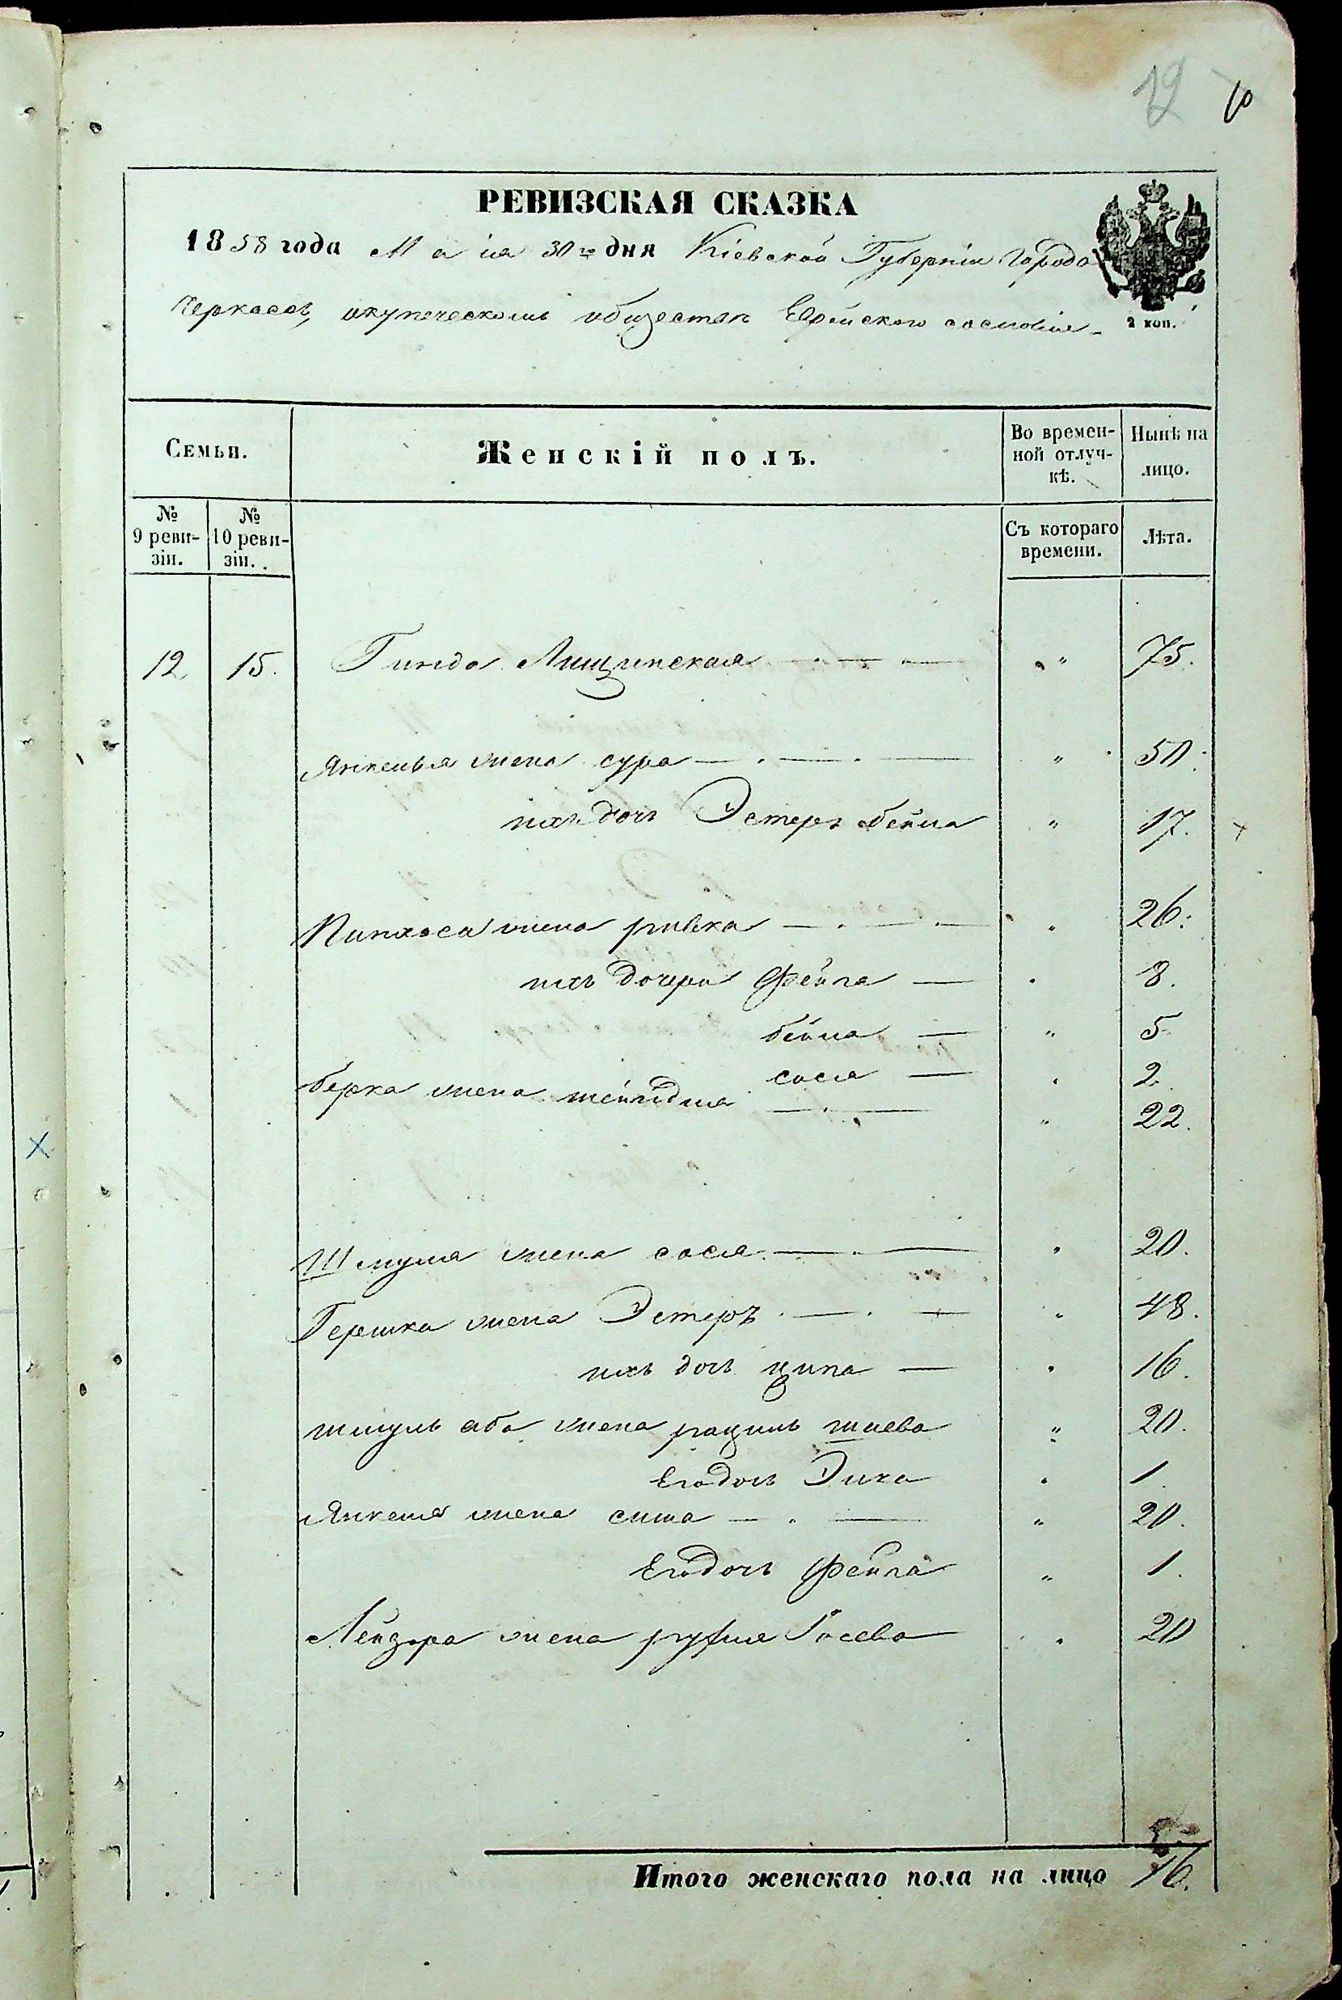 12 10
РЕВИЗСКАЯ СКАЗКА
1858 года Маія 30го дня Кіевской Губерніи Города
Черкасъ, окупеческомъ обществѣ Еврейского сословія
2 коп.
Семьи. Женскій полъ. Во времен-ной отлуч-кѣ. Нынѣ на лицо.
№ 9 реви-зіи. № 10 реви-зіи. Съ котораго времени. Лѣта.
12. 15. Гинда Лищинская — „ 75.
Янкелья жена сура — „ 50.
ихъ дочь Эстеръ бейла „ 17.
Пинхоса жена ривка — „ 26.
ихъ дочери Фейга — „ 8.
бейла — „ 5
сося — „ 2.
берка жена — „ 22.
Шмуля жена сося — „ 20.
Гершка жена Эстеръ — „ 48.
ихъ дочь ципа — „ 16.
шмуль аба жена рациль шаева „ 20.
Егодочь „ 1
Янкеля жена сима — „ 20.
Егодочь Фейга „ 1.
Лейзора жена Іосева „ 20
Итого женскаго пола на лицо 16.